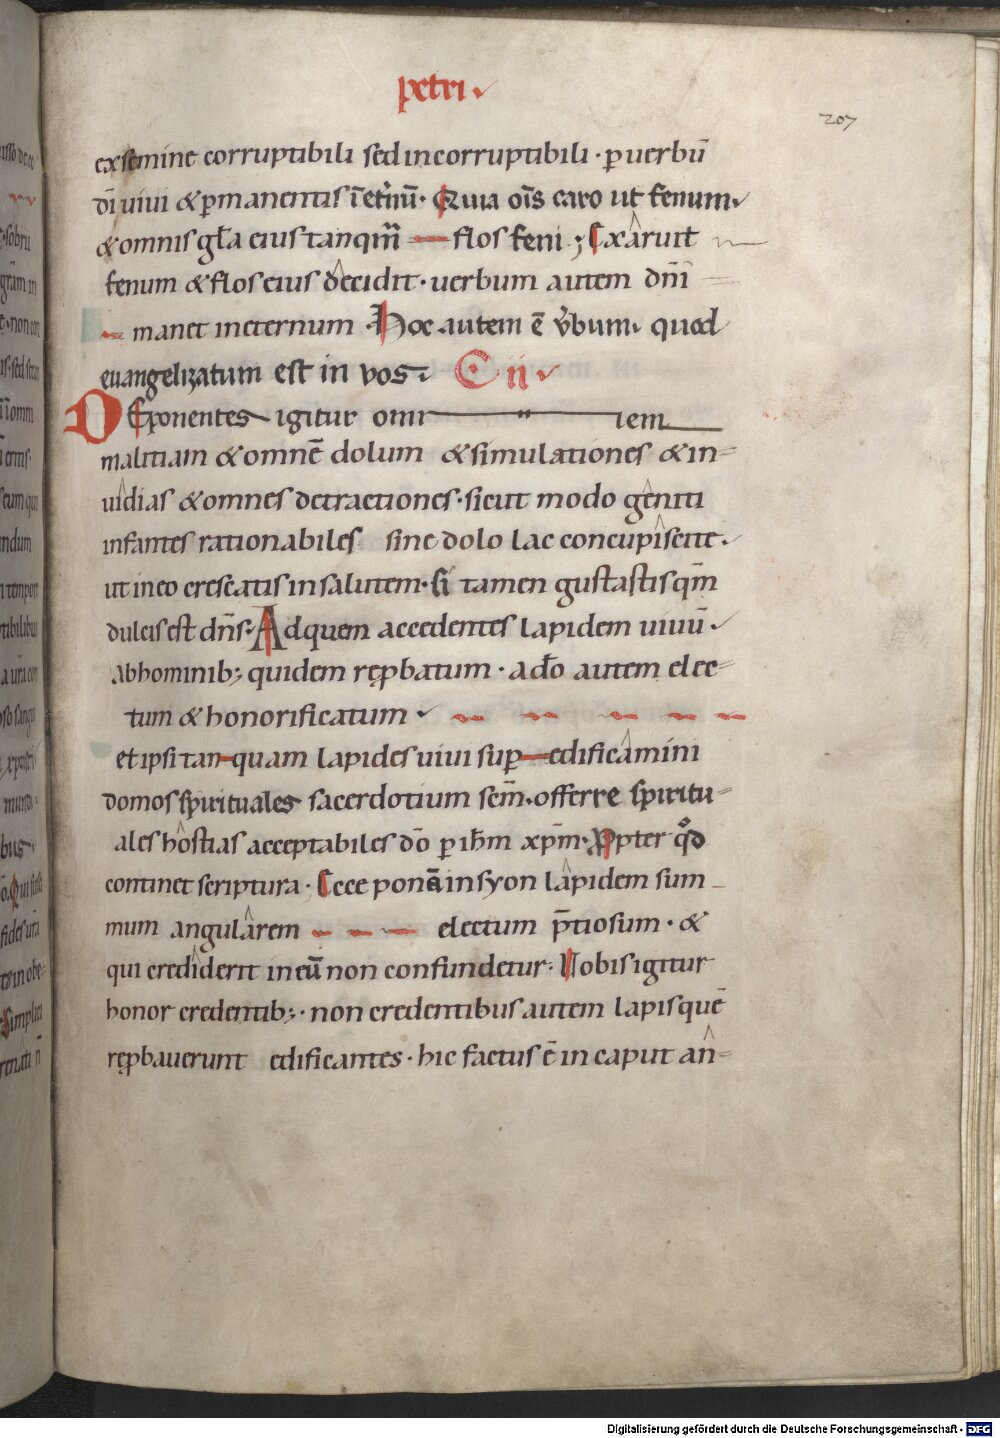 petri
207
ex semine corruptibili sed incorruptibili · p uerbū
dī uiui & pmanentis ī etnū · Quia oīs caro ut fenum
& omnis gła eius tanqm̄ flos feni ; Exâruit
fenum & flos eius dêcidit · uerbum autem dn̄i
manet in eternum · Hoc autem ē v̓bum quod
euangelizatum est in vos C ii
DEponentes igitur omnem
malitiam & omnē dolum & simulationes & in=
uîdias & omnes detractiones · sicut modo gêniti
infantes rationabiles sine dolo lac concupîscite ·
ut in eo crescatis in salutem · si tamen gustastis qm̄
dulcis est dn̄s · Ad quem accedentes lapidem uiuū ·
Ab hominib; quidem repbatum · a dō autem elec=
tum & honorificatum
et ipsi tanquam lapides uiui sup edificâmini
domos spirituales sacerdotium scm̄ · offerre spiritu-
ales hôstias acceptabiles dō p ihm xpm̄ · Ppter qd
continet scriptura · Ecce ponā in syon lâpidem sum
mum angulârem electum p̄tiosum · &
qui credîderit in eū non confundetur · Uobis igitur
honor credentib; · non credentibus autem lapis quē
repbauerunt edificantes · hic factus ē in caput an̂=
Digitalisierung gefördert durch die Deutsche Forschungsgemeinschaft - DFG